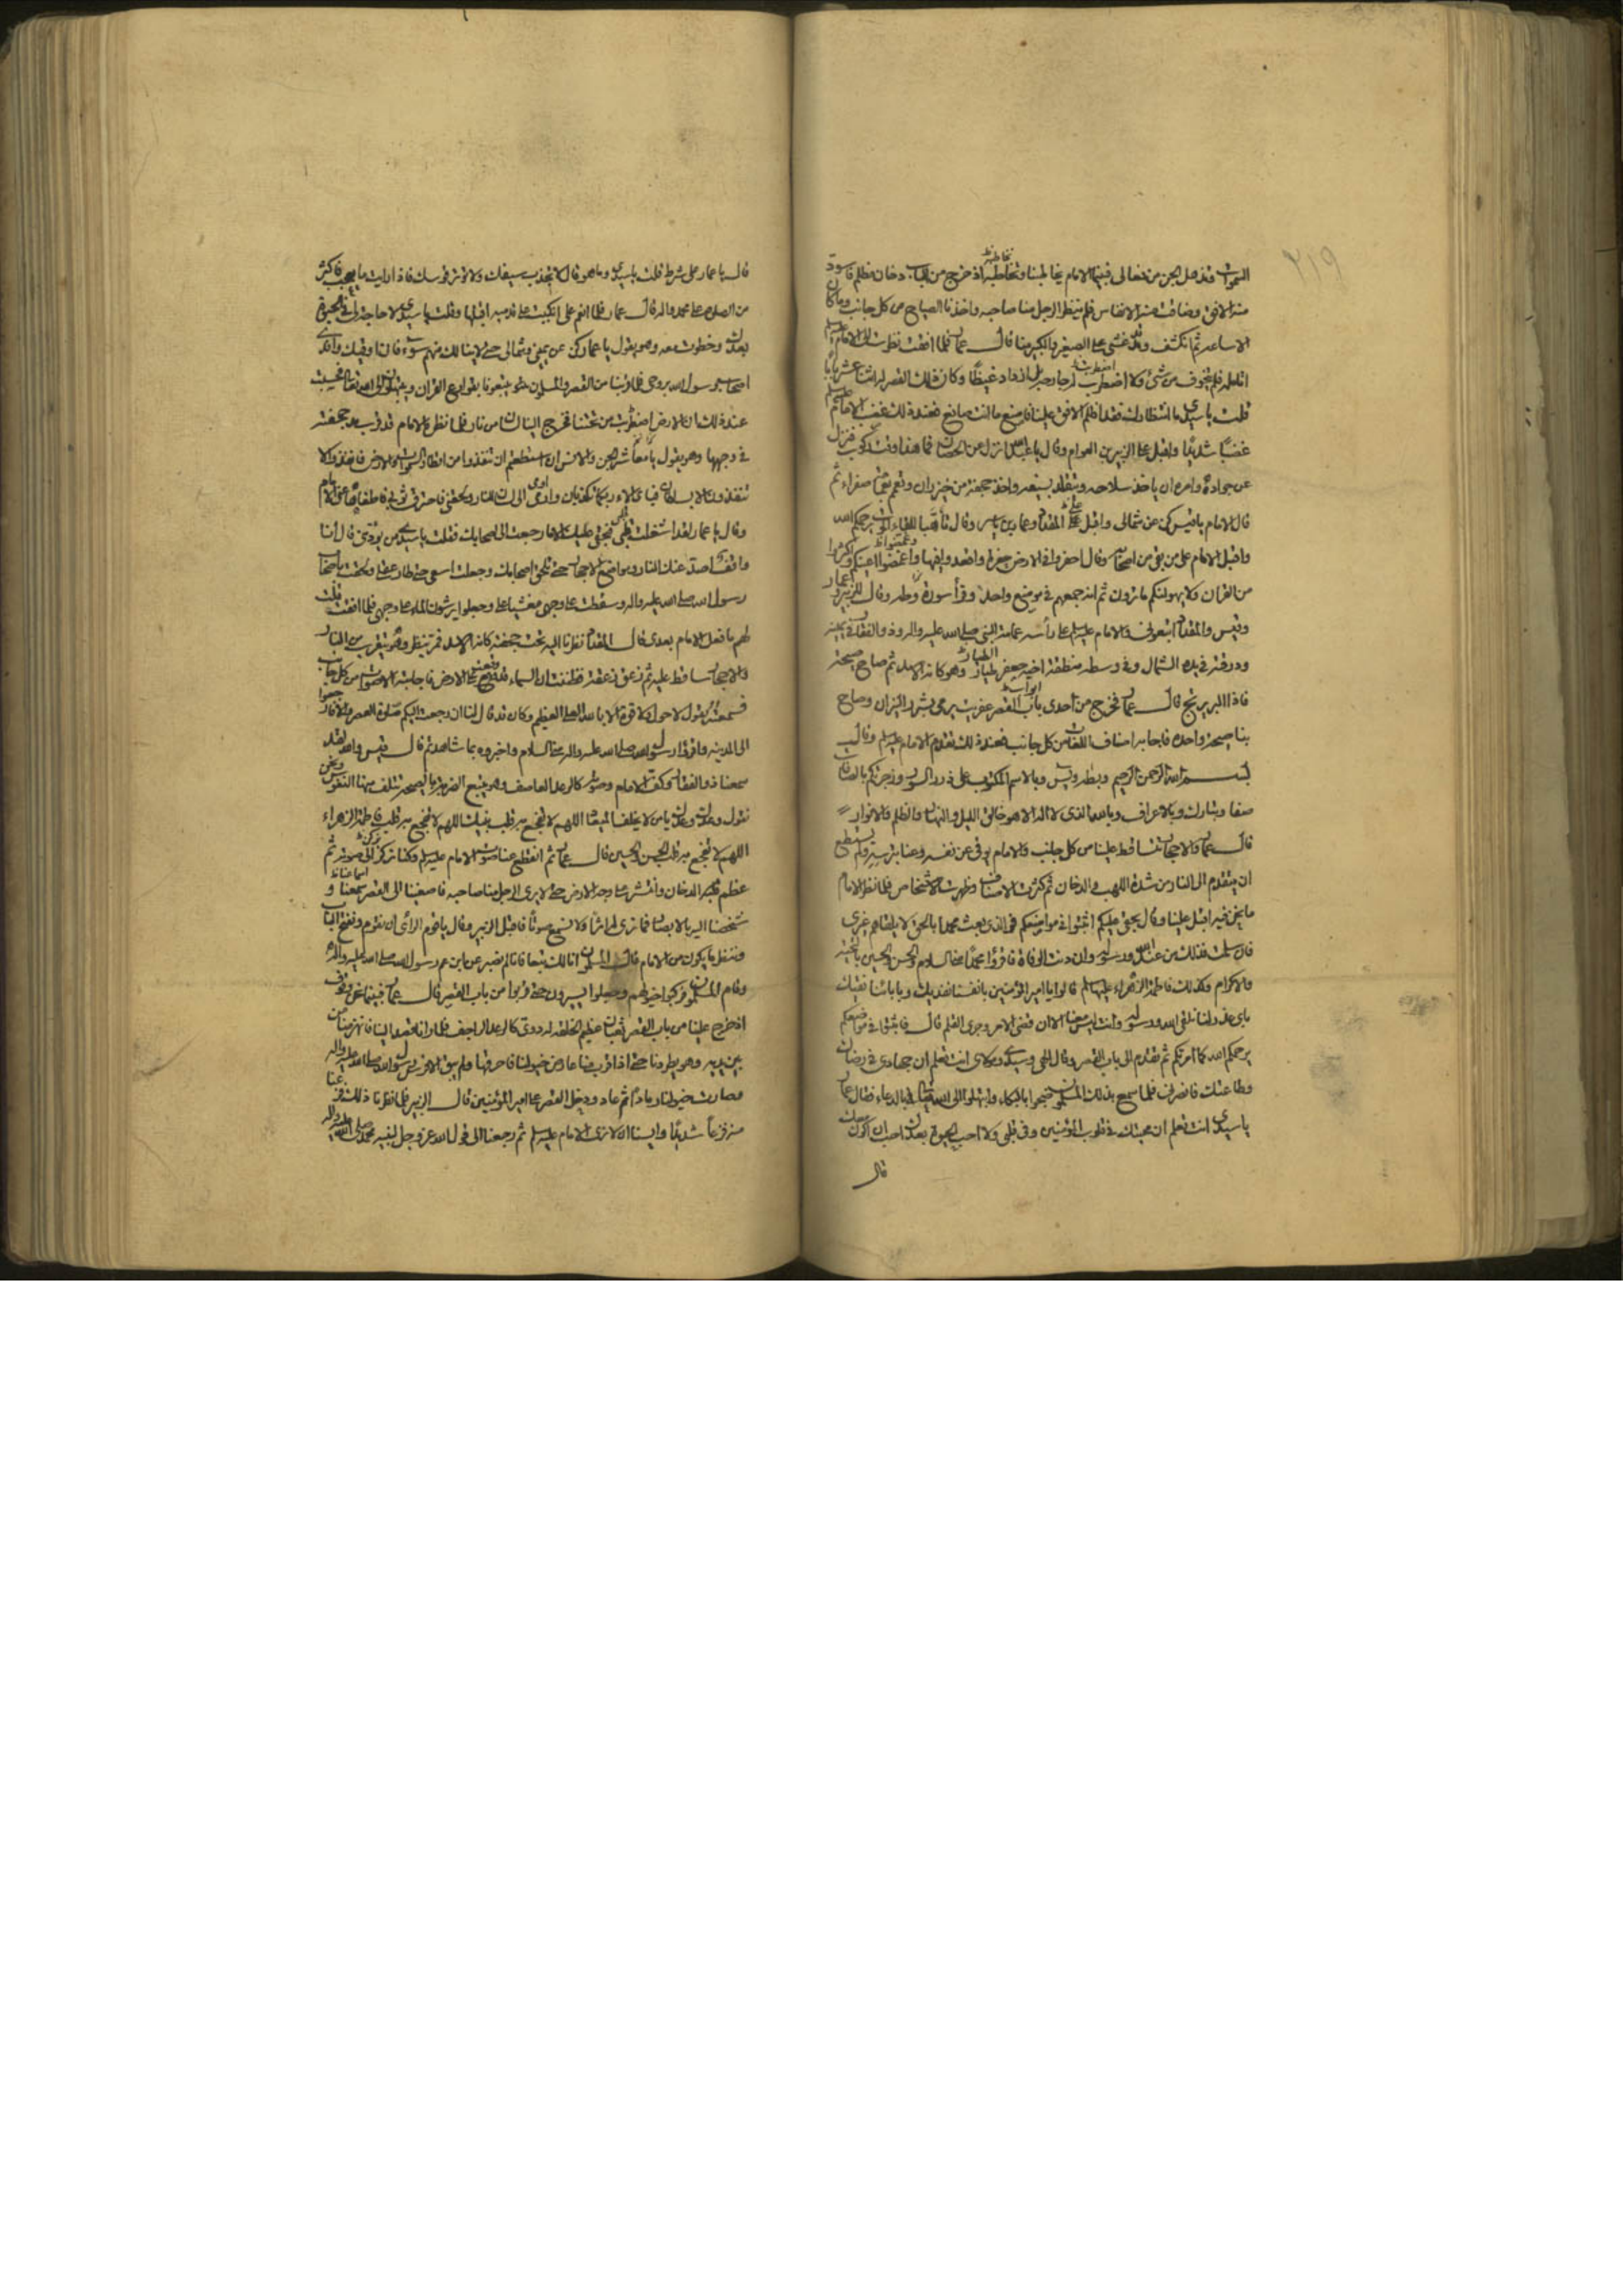 ٢١٩
السموات وتذهل الجن من فعالى فبينما الامام يخاطبنا ونخاطبه اذ خرج من الباب دخان مظلم فاسود
منه الافق وضاقت منه الانفاس فلم ينظر الرجل منا صاحبه واخذنا الصياح من كل جانب وما كان
الا ساعه ثم انكشف وقد غشى على الصغير والكبير منا قال عمار فلما افقت نظرت الى الامام
قلت يا سيدى ما انتظارك فقد اظلم الافق علينا فاصنع ما انت صانع فعند ذلك غضب الامام
غضبا شديدا واقبل على الزبير بن العوام وقال يا عبد الله انزل عن الحصان فما هذا وقت ركوب فنزل
عن جواده وامره ان ياخذ سلاحه ويتقلد بسيفه واخذ حجفة من خيزران وتعمم صفراء ثم
قال للامام يا قيس كن عن شمالى واقبل على المقداد وعمار بن ياسر وقال تأهبا للقاء يرحمكم الله
واقبل الامام على من بقى من اصحابه وقال احفروا فى الارض حفرة واقعدوا فيها وغمضوا اعينكم واكثروا
من القران ولا يهولنكم ما ترون ثم انه جمعهم فى موضع واحد وقرأ سورة وطه وقال للزبير وعمار
وقيس والمقداد اتبعونى والامام عليه السلم على رأسه عمامة النبى صلى الله عليه واله وذو الفقار فى يمينه
ودرقته فى يده الشمال وفى وسطه منطقة اخيه جعفر الطيار وهو كانه الاسد ثم صاح صيحة
قال عمار فخرج من احدى ابواب القصر عفريت يرمى بشرر النيران وصاح
بنا صيحة واحده فاجابه اصناف اللغات من كل جانب فعند ذلك تقدم الامام عليه السلم وقال
بسم الله الرحمن الرحيم وبطه ويس وبالاسم المكتوب على
صفا وتبارك وبالاعراف وبالله الذى لا اله الا هو خالق الليل والنهار والظلم والانوار
قال عمار والاحجار تتساقط علينا من كل جانب والامام يوقى عن نفسه وعنا بترسه ولم يستطع
ان يتقدم الى النار من شدة اللهب والدخان ثم كثرت الاصناف وظهرت الاشخاص فلما نظر الامام
ما نحن فيه اقبل علينا وقال بحقى عليكم اثبتوا فى مواضعكم فوالذى بعث محمدا بالحق لا يلقاهم غيرى
فان سلمت فذلك من عند الله ورسوله وان دنت الوفاة فاقرؤا محمدا منى السلام والحسن والحسين بالتحية
والاكرام وكذلك فاطمة الزهراء عليها السلم قالوا يا امير المؤمنين بانفسنا نفديك وبابائنا نقيك
باى عذر لنا نلقى الله ورسوله وانت ليس معنا الان قضى الامر وجرى القلم قال فاثبتوا فى مواضعكم
يرحمكم الله كما امرتكم ثم تقدم الى باب القصر وقال الهى وسيدى ومولاى انت تعلم ان جهادى فى رضاك
وطاعتك فانصرنى فلما سمع بذلك المسلمون ضجوا بالبكاء وابتهلوا الى الله تعالى بالدعاء فقال عمار
يا سيدى انت تعلم ان محبتك فى قلوب المؤمنين وفى قلبى ولا احب الحيوة بعدك احب ان اكون معك
قال
قال يا عمار على شرط قلت يا سيدى وما هو قال لا تجذب سيفك ولا توتر قوسك فاذا رايت ما يعجبك فاكثر
من الصلوة على محمد واله قال عمار فلما انعم على انكبيت على قدميه اقبلها وقلت يا سيدى لا حاجة لى فى الحيوة
بعدك وخطوت معه وهو يقول يا عمار كن عن يمينى وشمالى حتى لا ينالك منهم سوء فانا اوقيك وافدى
اصحاب رسول الله بروحى فلما قربنا من القصر والمسلمون
عند ذلك ان الارض اضطربت من تحتنا فخرج الينا من نار فلما نظر الامام قد قرب مد حجفته
فى وجهها وهو يقول يا معاشر الجن والانس ان استطعتم ان تنفذوا من اقطار السموات والارض فانفذوا لا
تنفذون الا بسلطان فباى الاء ربكما تكذبان
وقال يا عمار لقد اشغلت قلبى فبحقى عليك الا ما رجعت الى اصحابك فقلت يا سيدى من يوذى قال انا
رسول الله صلى الله عليه واله وسقطت على وجهى مغشيا على وجعلوا يرشون الماء على وجهى فلما افقت قلت
لهم ما فعل الامام بعدى قال المقداد نظرنا اليه تحت حجفته كانه الاسد
والاحجار تتساقط عليه ثم زعق زعقة فظننت ان السماء قد وقعت على الارض فاجابته الاصوات من كل جانب
فسمعته يقول لا حول ولا قوة الا بالله العلى العظيم وكان قد قال لنا ان رجعت اليكم صلوة العصر والا فارجعوا
الى المدينه واقرؤا رسول الله صلى الله عليه واله منى السلام واخبروه بما شاهدتم قال قيس والله لقد
سمعنا ذو الفقار وكف الامام وصوته كالرعد العاصف وهو يتبع الضربة بالصيحة تتلف منها النفوس ونحن
نقول وعدك وعدك يا من لا يخلف الميعاد اللهم لا تفجع به قلب نبيك اللهم لا تفجع به قلب فاطمة الزهراء
اللهم لا تفجع به قلب الحسن والحسين قال عمار ثم انقطع عنا صوت الامام عليه السلم وكنا نركن الى صوته ثم
عظم علينا الدخان وانتشر على وجه الارض حتى لا يرى الرجل منا صاحبه فاصغينا الى القصر اسماعنا و
شخصنا اليه بالابصار فما نرى له اثرا ولا نسمع صوتا فاقبل الزبير وقال يا قوم الراى ان نقوم ونفتح الباب
وننظر ما يكون من الامام قال المسلمون انا لك تبعا فانا لم نصبر عن ابن عم رسول الله صلى الله عليه واله
وقام المسلمون فركبوا خيولهم وجعلوا يسيرون حتى قربوا من باب القصر قال عمار فبينما نحن وقوف
اذ خرج علينا من باب القصر ثعبان عظيم الخلقه له دوى كالرعد الراجف فلما رانا قصد الينا فانهزمنا من
بين يديه وهو يطردنا حتى اذا قرب منا عارض خيولنا فاحرقها ولم يبق الا فرس رسول الله صلى الله عليه واله
فصارت خيولنا رمادا ثم عاد ودخل القصر على امير المؤمنين قال الزبير فلما نظرنا ذلك فزعنا
منه فزعا شديدا وايسنا ان لا نرى الامام عليه السلم ثم رجعنا الى قول الله عز وجل لنبيه محمد صلى الله عليه واله